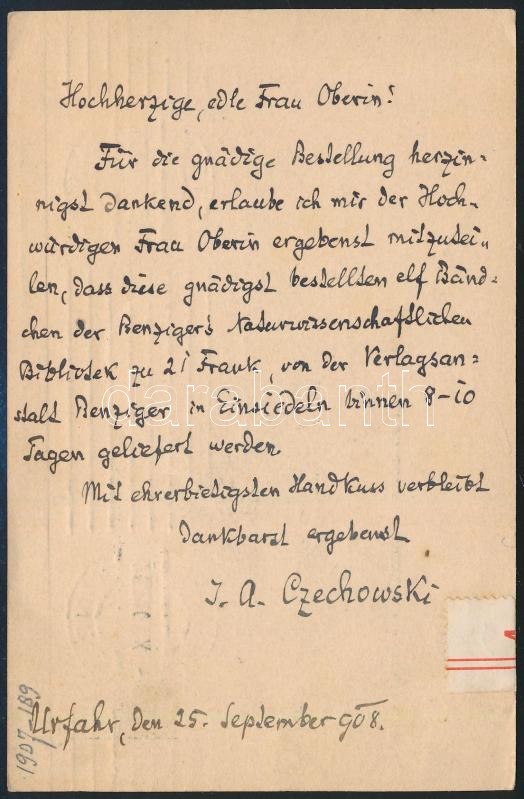 Hochherzige, edle Frau Oberin!
Für die gnädige Bestellung herzin-
nigst dankend, erlaube ich mir der Hoch-
würdigen Frau Oberin ergebenst mitzutei-
len, dass diese gnädigst bestellten elf Bänd-
chen der Benziger's Naturwissenschaftlichen
Bibliotek zu 21 Frank, von der Verlagsan-
stalt Benziger in Einsiedeln binnen 8-10
Tagen geliefert werden.
Mit ehrerbietigsten Handkuss verbleibt
dankbarst ergebenst
J. A. Czechowski
Urfahr, den 25. September 908.
1907-189
darabanth